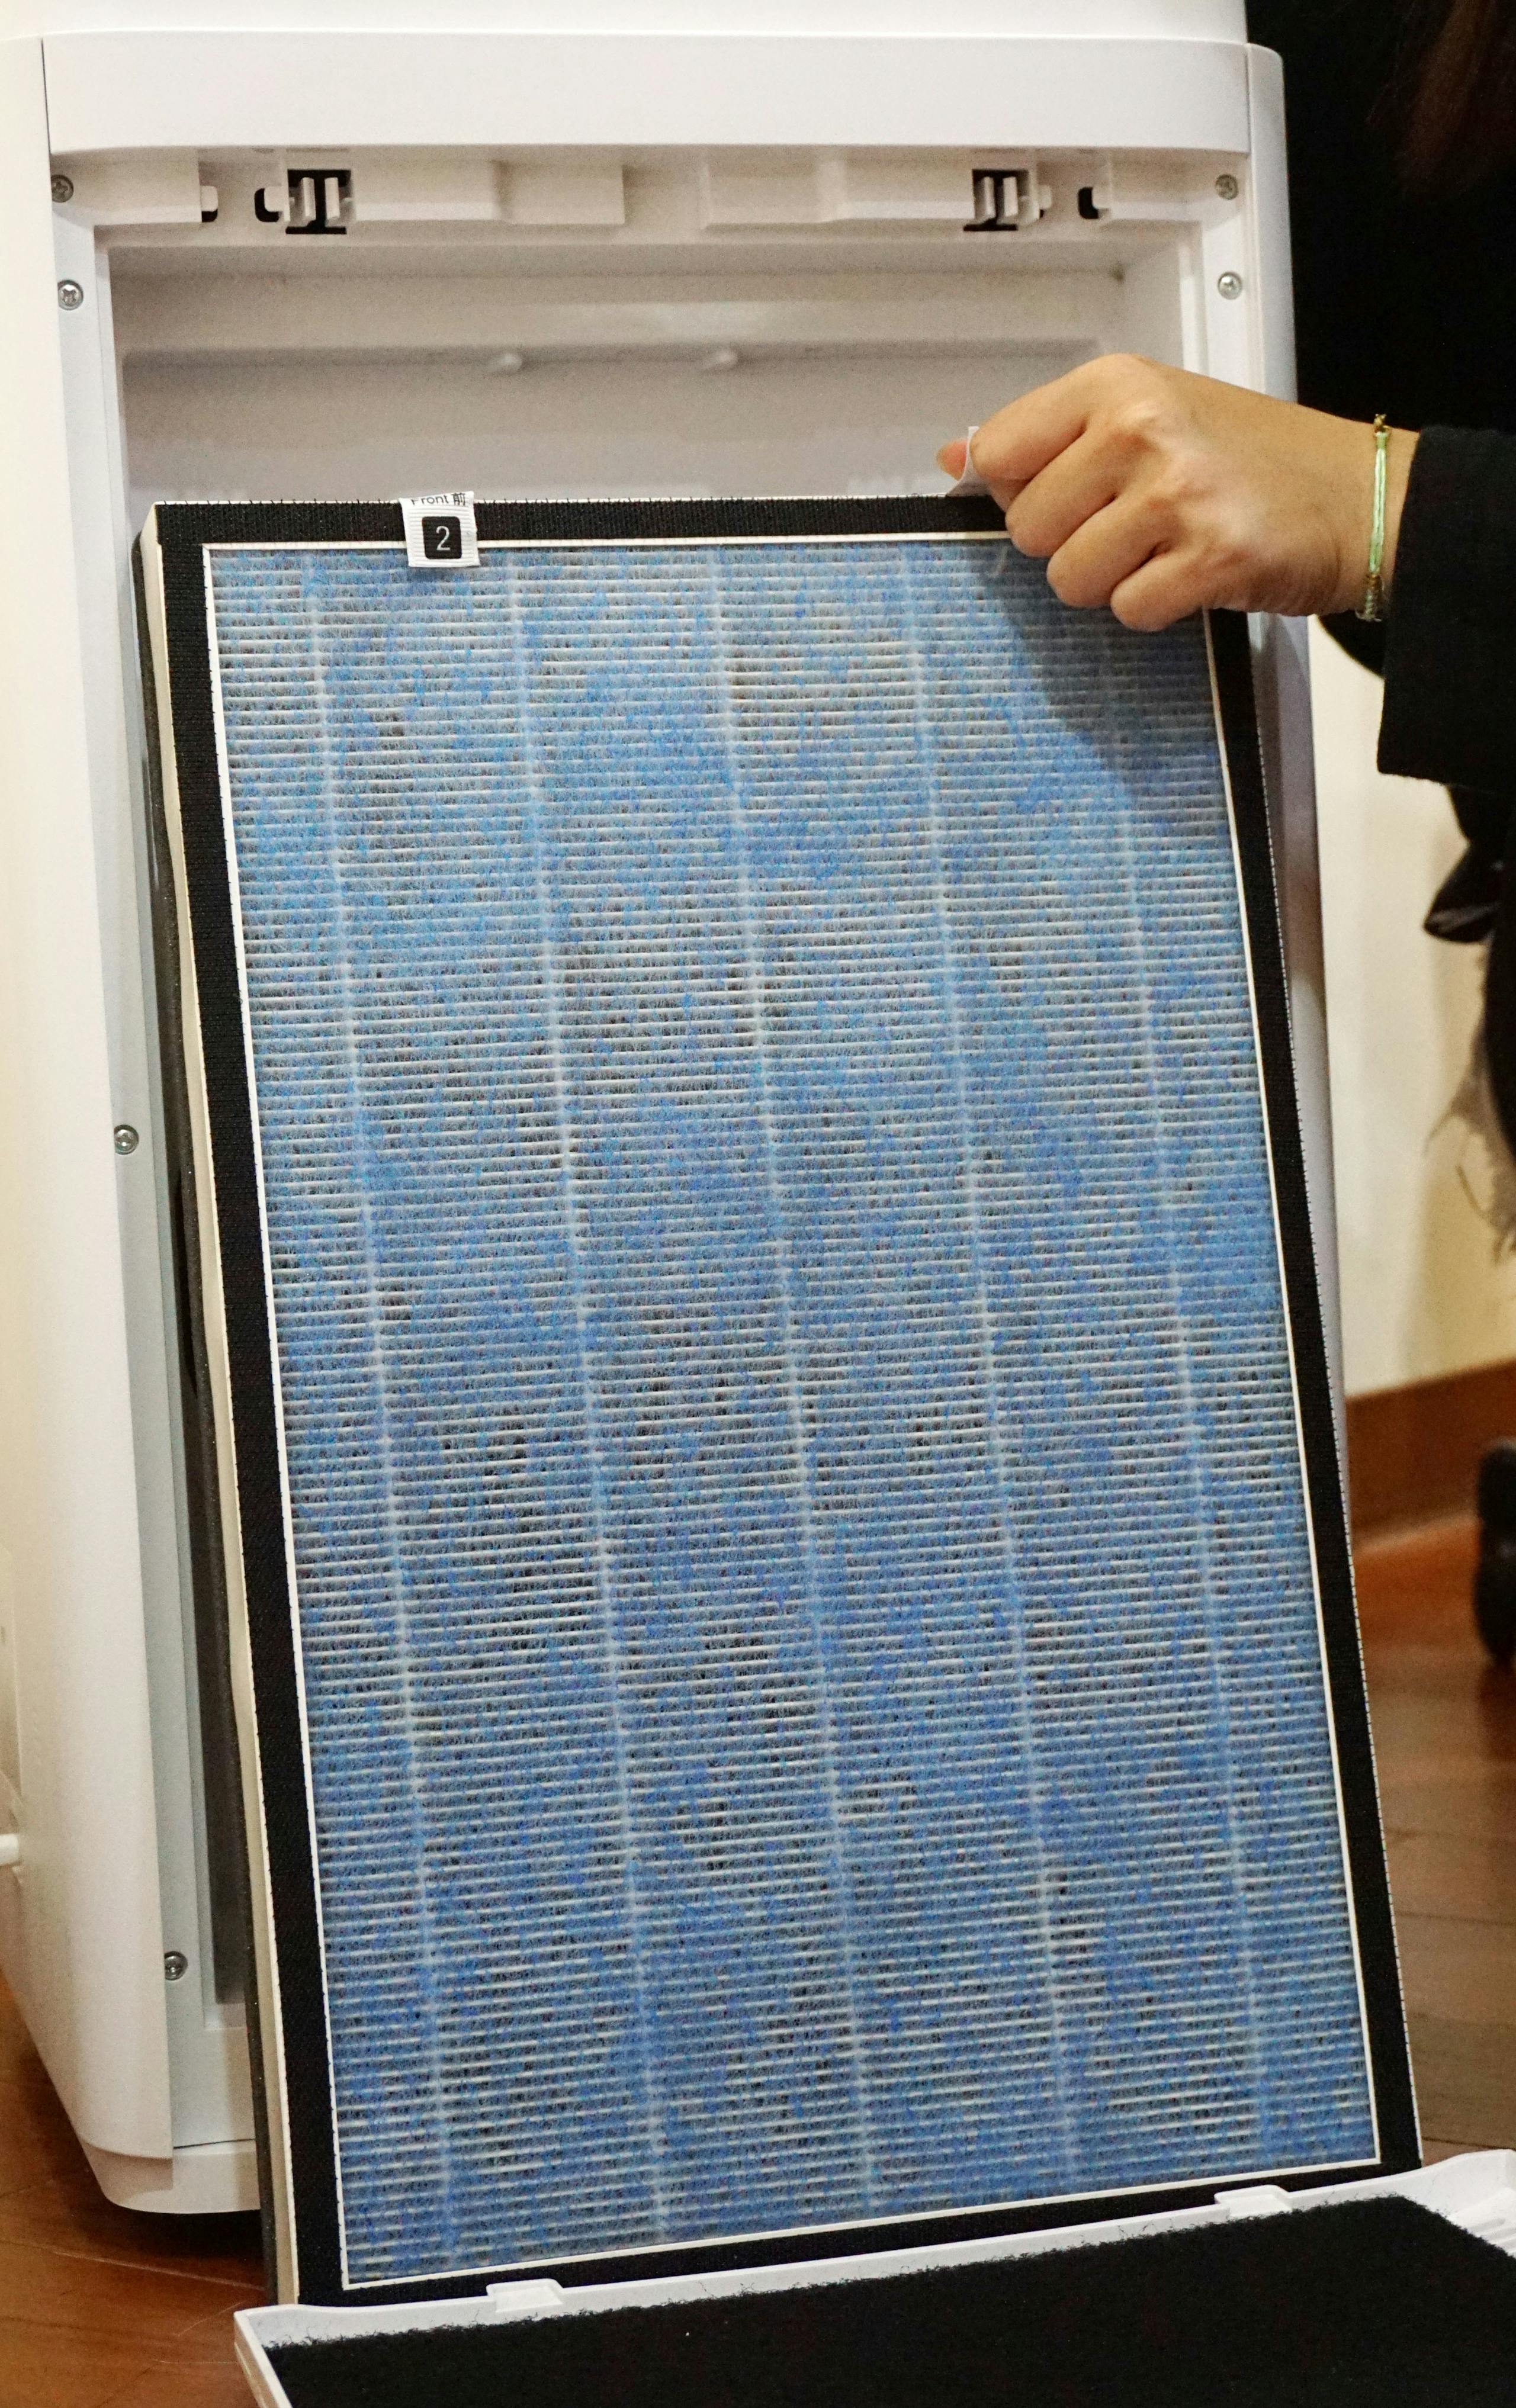 Front 前
2